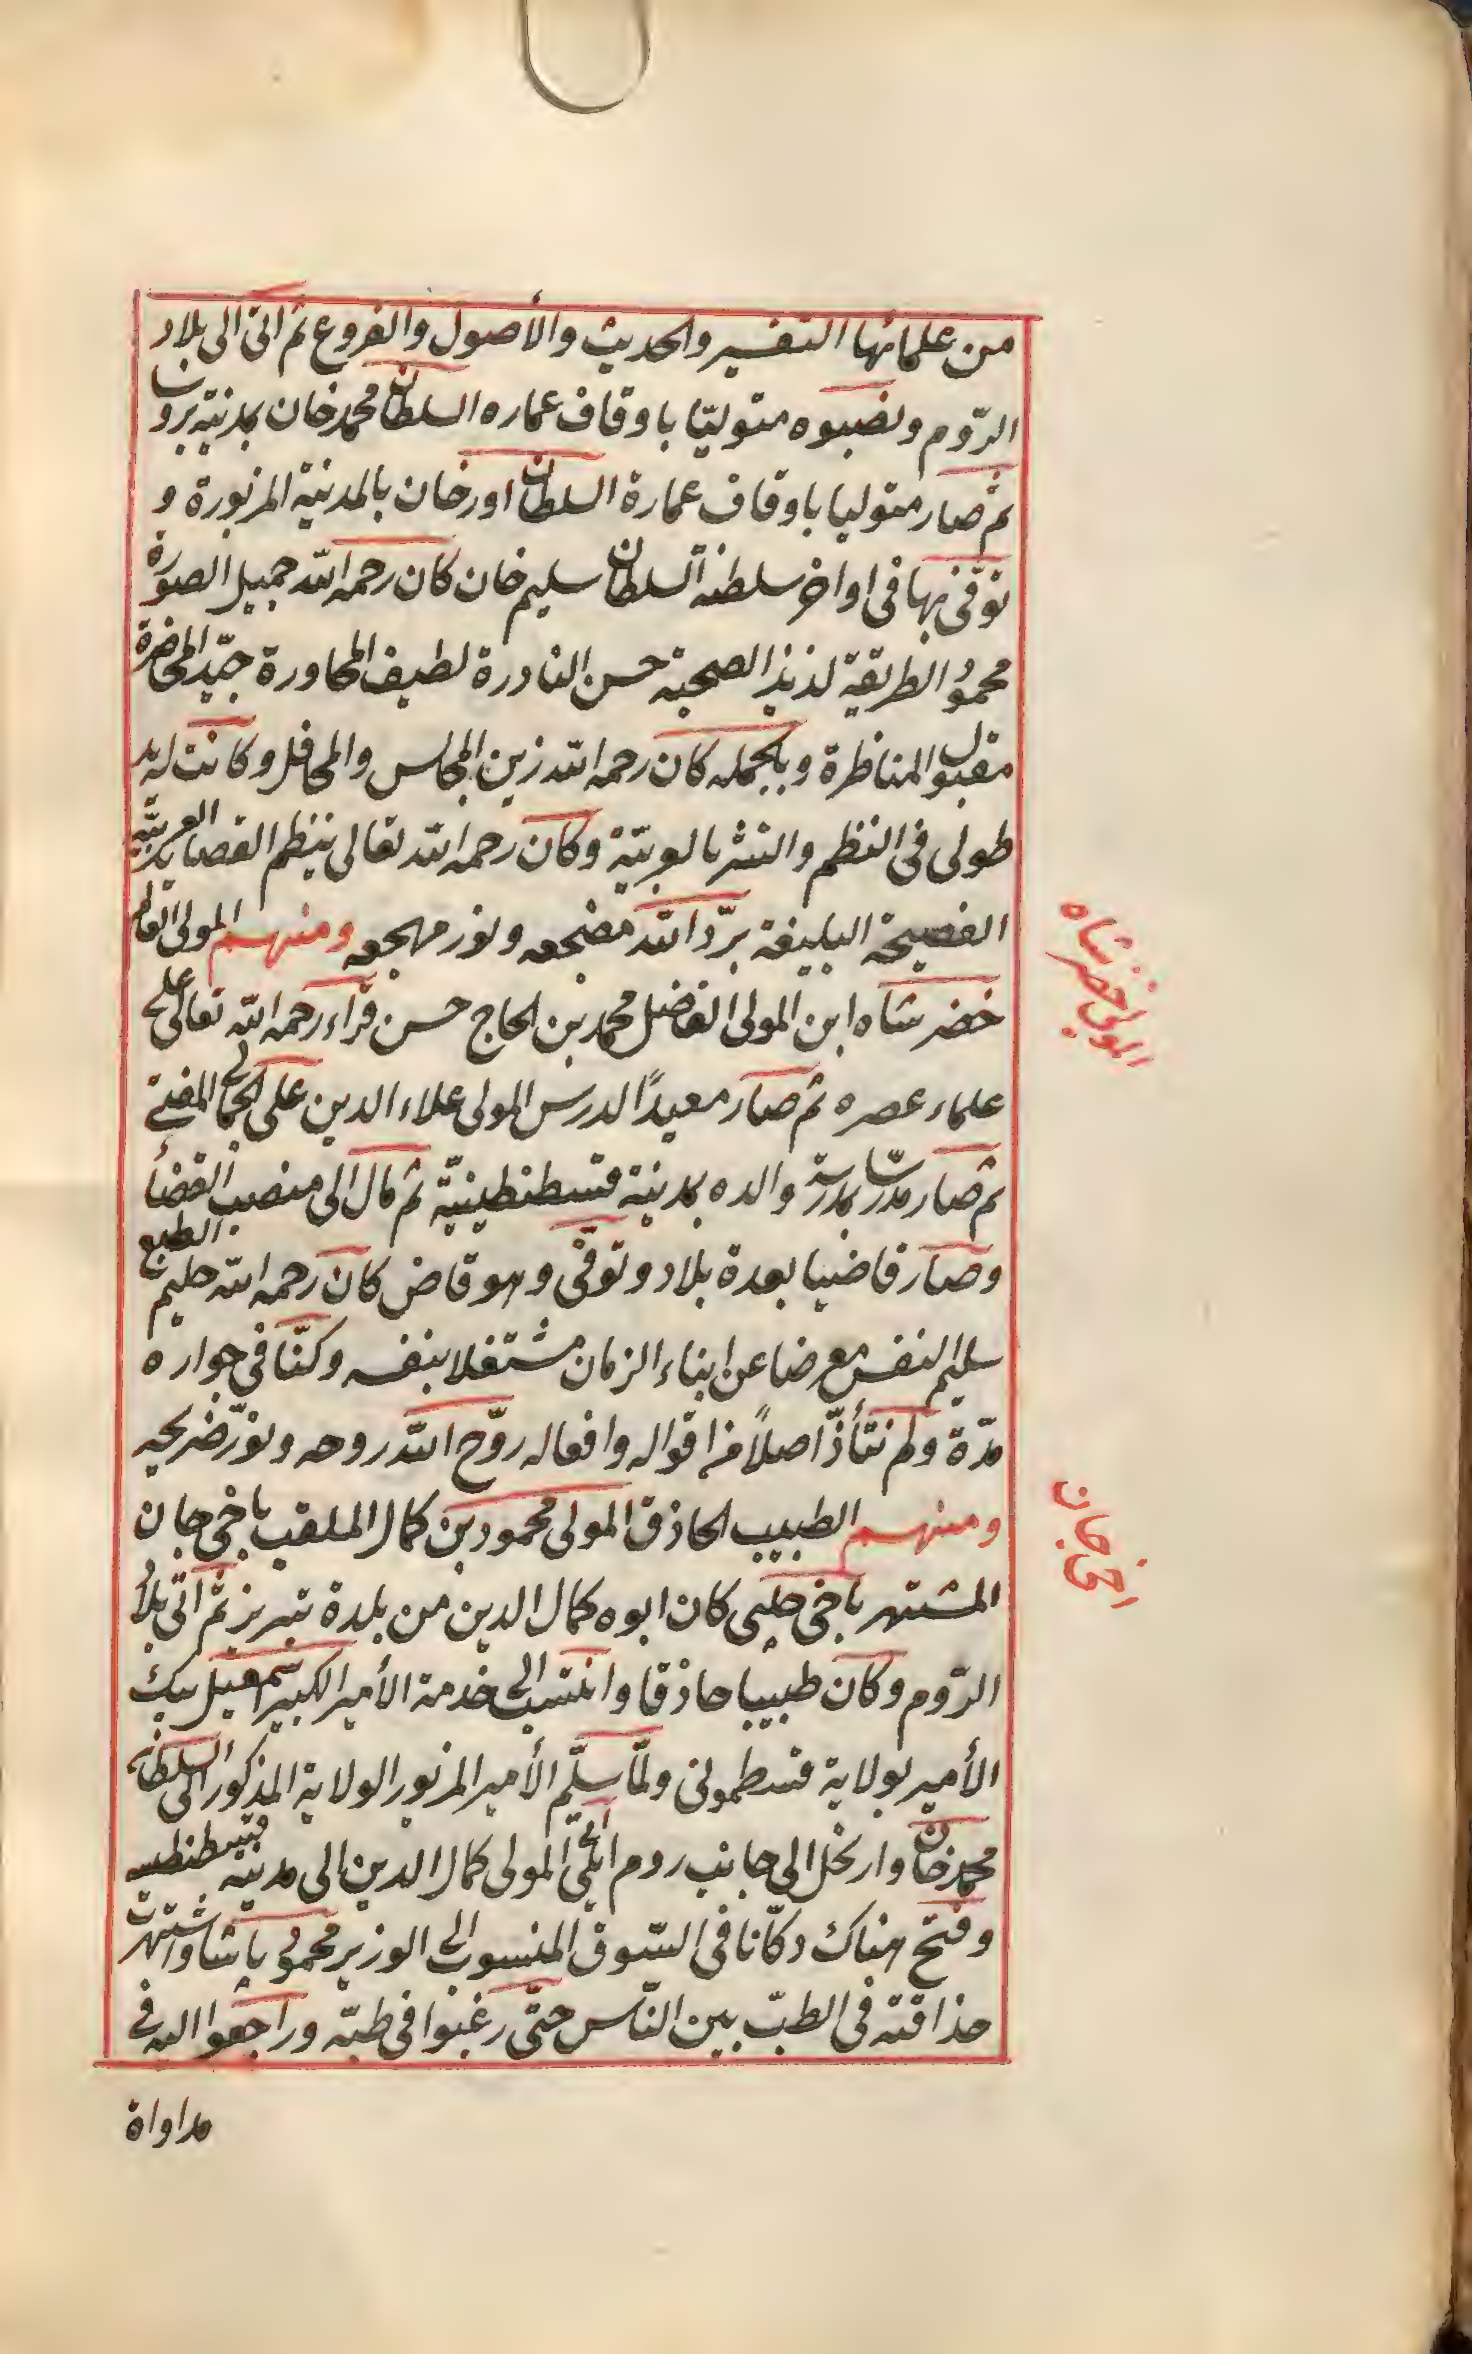 من علمائها التفسير والحديث والأصول والفروع ثم اتى الى بلاد
الرّوم ونصبوه متوليّا باوقاف عماره السلطان محمد خان بمدينة بروسا
ثم صار متوليا باوقاف عمارة السلطان اورخان بالمدينة المزبورة و
توفّى بها فى اواخر سلطنة السلطان سليم خان كان رحمه الله جميل الصورة
محمود الطريقة لذيذ الصحبة حسن النادرة لطيف المحاورة جيّد المحاضرة
مقبول المناظرة وبالجمله كان رحمه الله زين المجالس والمحافل وكانت له يد
طولى فى النظم والنثر بالعربيّة وكان رحمه الله تعالى ينظم القصايد العربيّة
الفصيحة البليغة برّد الله مضجعه ونور مهجعه ومنهم المولى العالم
خضر شاه ابن المولى الفاضل محمد بن الحاج حسن قرأ رحمه الله تعالى على
المولى خضر شاه
علماء عصره ثم صار معيدًا لدرس المولى علاء الدين على الجمالى المفتى
ثم صار مدرّسا بمدرسة والده بمدينة قسطنطينيّة ثم مال الى منصب القضأ
وصار قاضيا بعدة بلاد وتوفّى وهو قاض كان رحمه الله حليم الطبع
سليم النفس معرضا عن ابناء الزمان مشتغلا بنفسه وكنّا فى جواره
مدّة ولم نتأذّ اصلاً من اقواله وافعاله روّح الله روحه ونوّر ضريحه
ومنهم الطبيب الحاذق المولى محمود بن كمال الملقب باخى جان
اخى جان
المشتهر باخى چلبى كان ابوه كمال الدين من بلدة تبريز ثم اتى بلاد
الرّوم وكان طبيبا حاذقا وانتسب الى خدمة الأمير الكبير اسمعيل بيك
الأمير بولاية قسطمونى ولمّا سلّم الأمير المزبور الولاية المذكور الى السلطان
محمد خان وارتحل الى جانب روم ايلى اتى المولى كمال الدين الى مدينة قسطنطينيه
وفتح هناك دكّانا فى السّوق المنسوب الى الوزير محمود پاشا واشتهرت
حذاقته فى الطبّ بين النّاس حتّى رغبوا فى طبّه وراجعوا اليه فى
مداواة